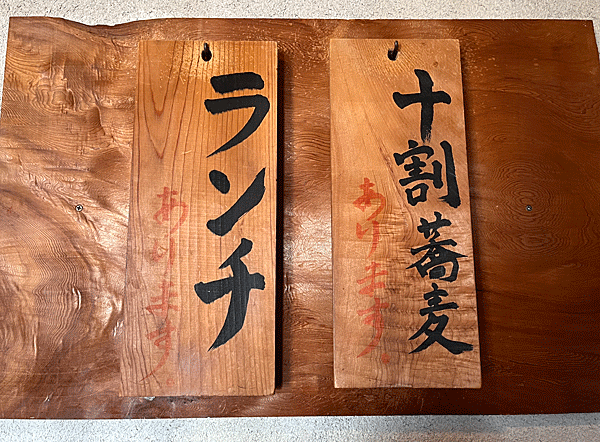 十割蕎麦
あります
ランチ
あります